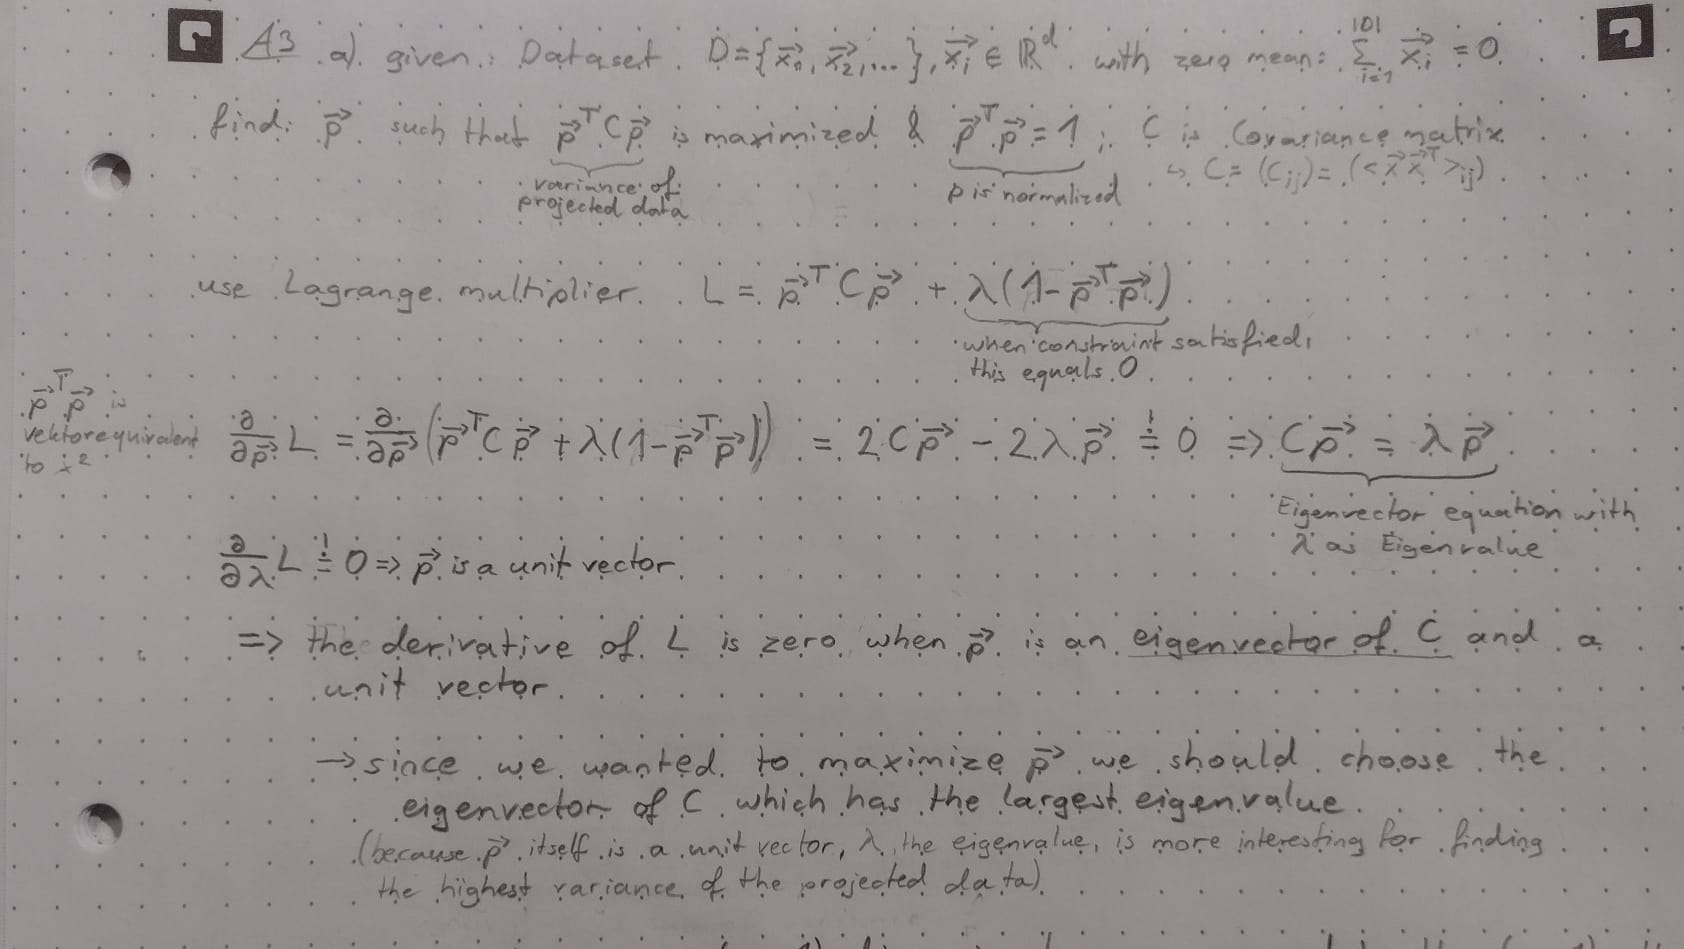 A3 a) given: Dataset D={x⃗₁, x⃗₂,...}, x⃗ᵢ ∈ ℝᵈ with zero mean: Σᵢ₌₁^|D| x⃗ᵢ = 0
find: p⃗ such that p⃗ᵀCp⃗ is maximized & p⃗ᵀp⃗ = 1; C is Covariance matrix
↳ C = (Cᵢⱼ) = (<x⃗x⃗ᵀ>ᵢⱼ)
variance of
projected data
p is normalized
use Lagrange multiplier L = p⃗ᵀCp⃗ + λ(1-p⃗ᵀp⃗)
when constraint satisfied,
this equals 0
p⃗ᵀp⃗ is
vektorequivalent
to x²
∂/∂p⃗ L = ∂/∂p⃗ (p⃗ᵀCp⃗ + λ(1-p⃗ᵀp⃗)) = 2Cp⃗ - 2λp⃗ =! 0 => Cp⃗ = λp⃗
Eigenvector equation with
λ as Eigenvalue
∂/∂λ L =! 0 => p⃗ is a unit vector
=> the derivative of L is zero when p⃗ is an eigenvector of C and a
unit vector.
→ since we wanted to maximize p⃗ we should choose the
eigenvector of C which has the largest eigenvalue.
(because p⃗ itself is a unit vector, λ, the eigenvalue, is more interesting for finding
the highest variance of the projected data)